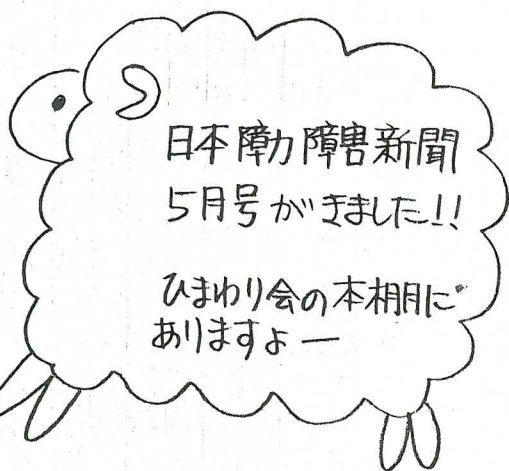 日本障力障害新聞
5月号がきました!!
ひまわり会の本棚に
ありますよー